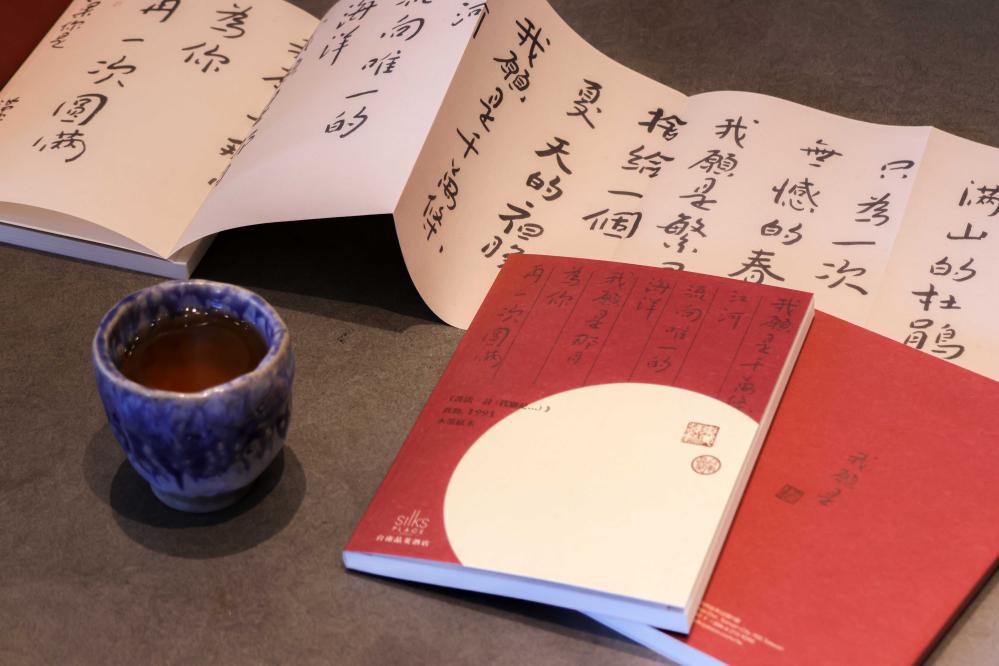 满山的杜鵑
只為一次
無憾的春
我願是繁
捨給一個
夏
天的
我願是千萬條
河
流向唯一的
海洋
為你
再
一次圓滿
我願是千萬條
江河
流向唯一的
海洋
我願是那月
為你
再一次圓滿
1991
水墨紙本
silks
PLACE
台南晶英酒店
我願是